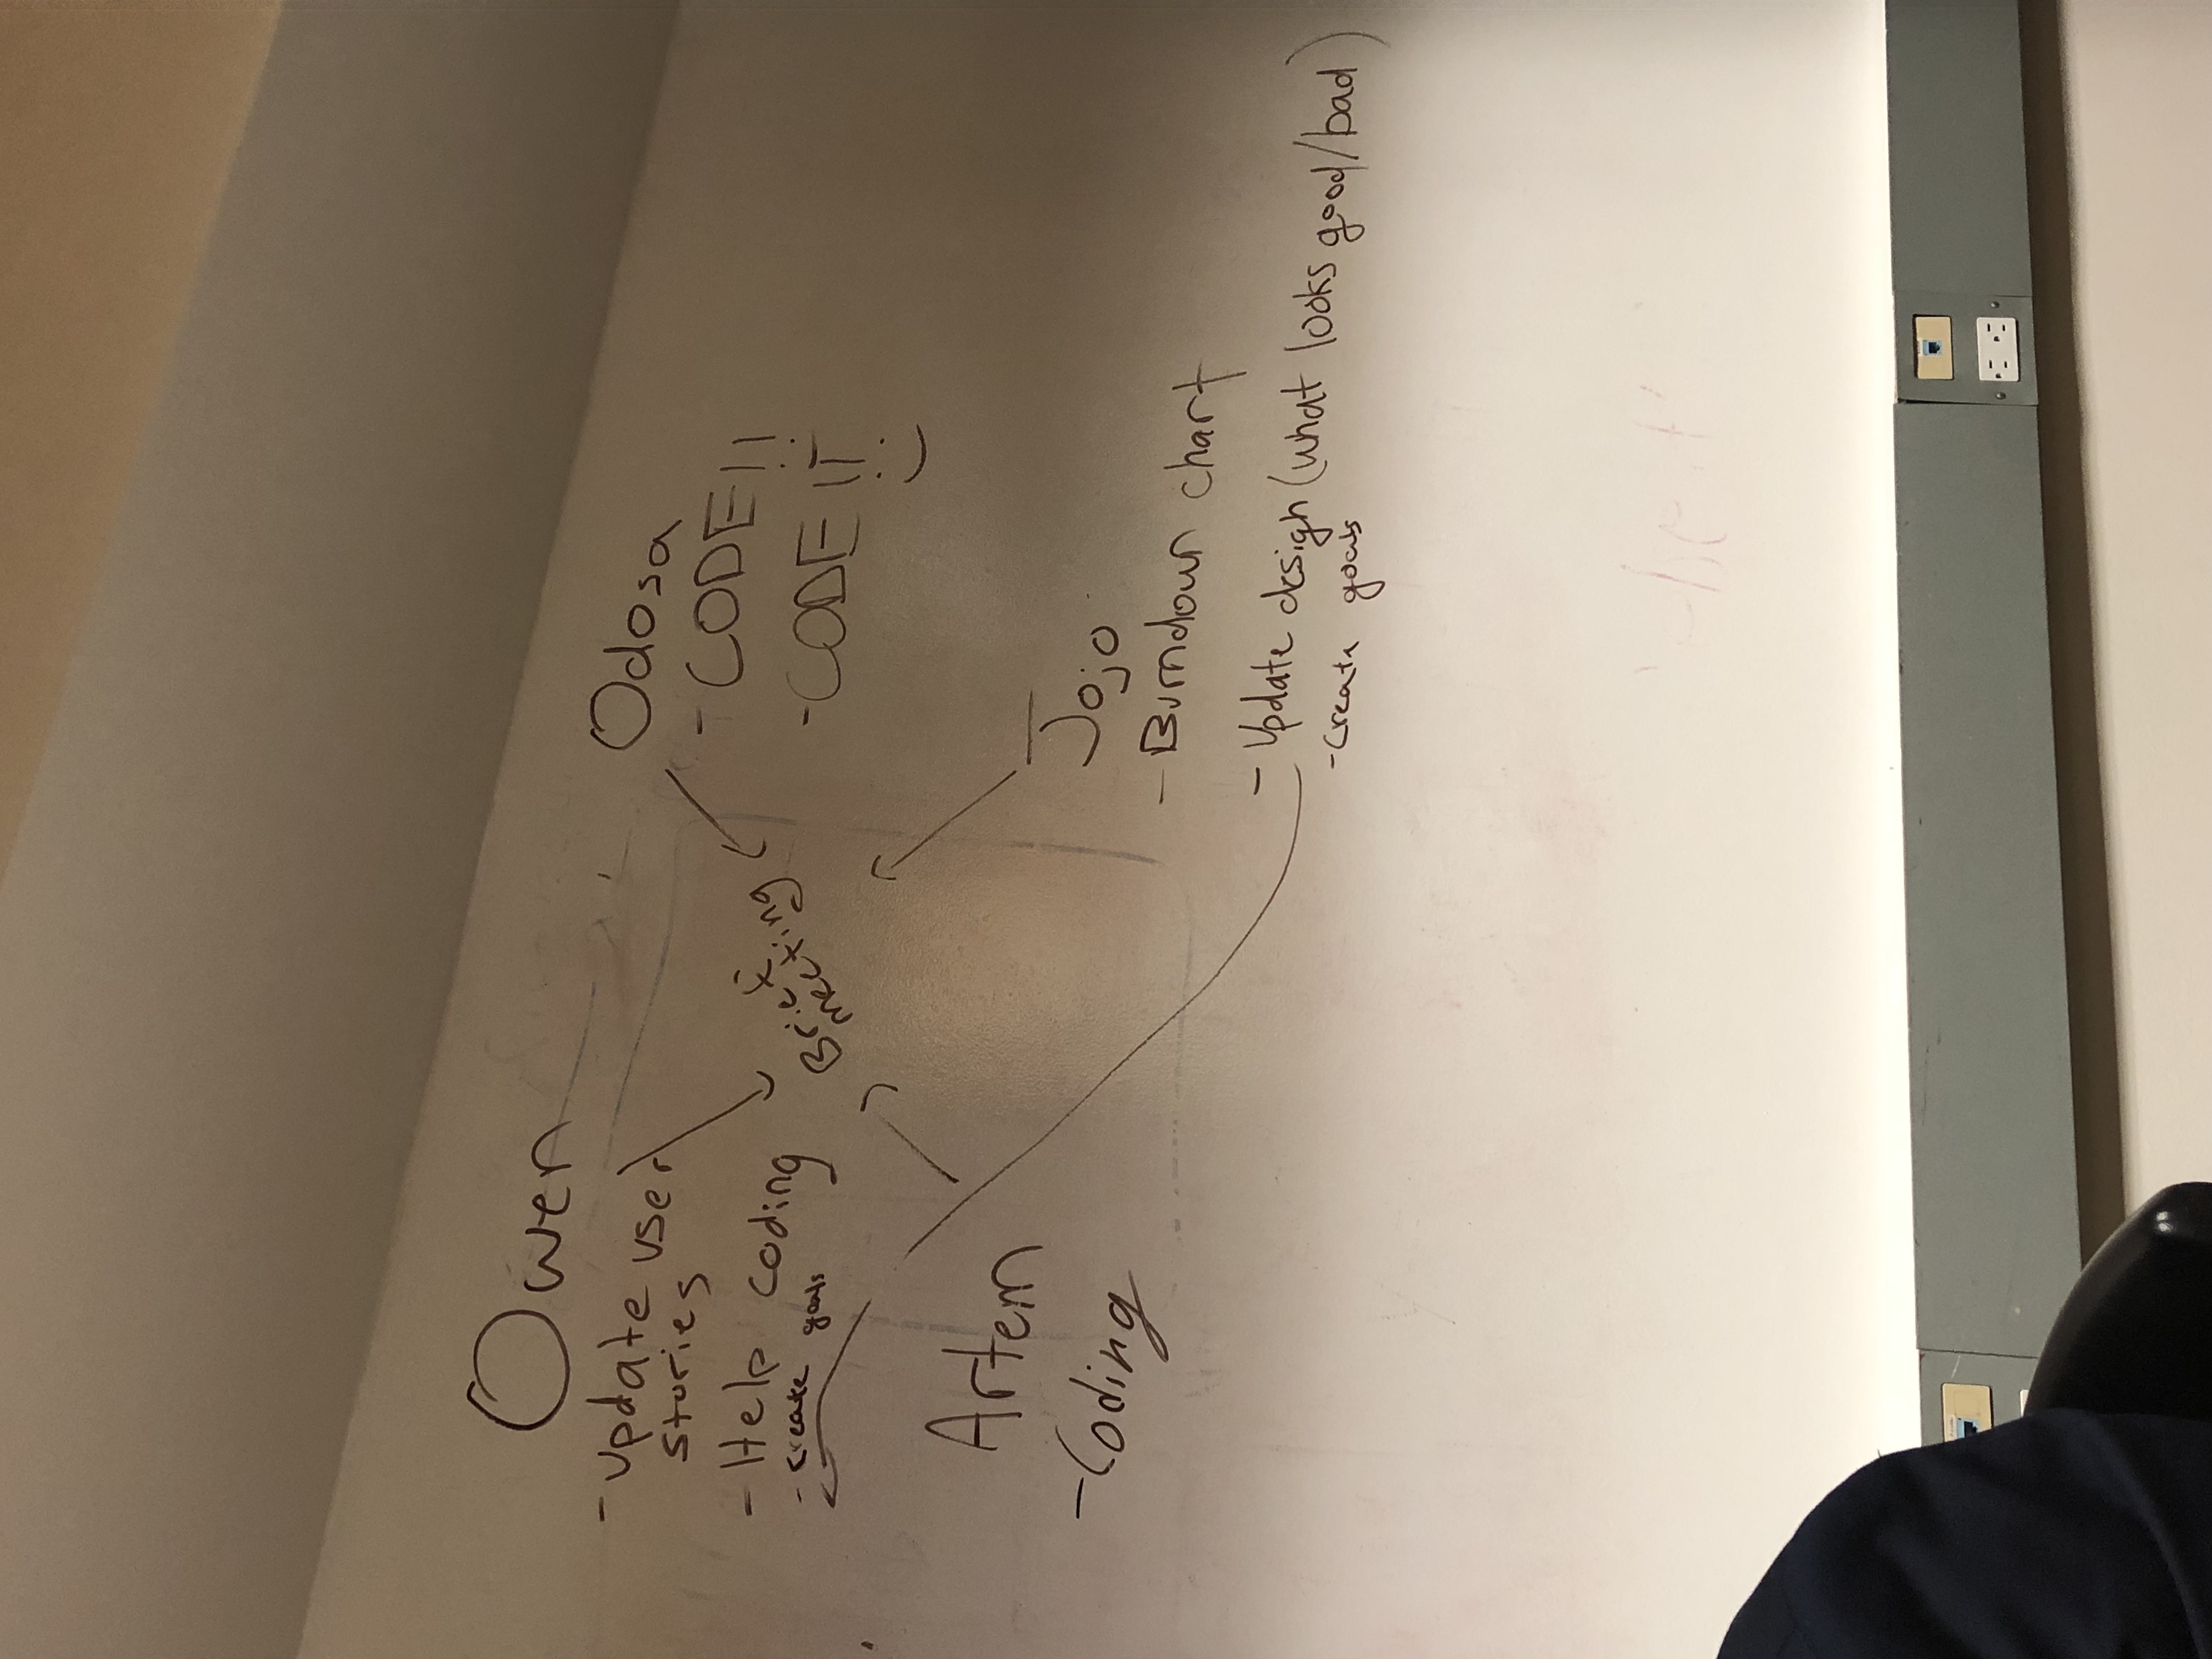 Owen
- update user
stories
- Help coding
- create goals
Brief
meeting
Odosa
- CODE!!
- CODE!!
Artem
- Coding
Jojo
- Burndown chart
- Update design (what looks good/bad)
- create goals